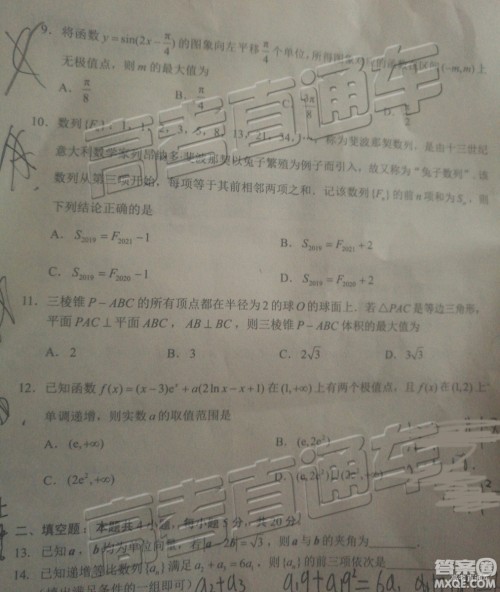 9. 将函数 y=sin(2x−π/4) 的图象向左平移 π/4 个单位,所得图象 的函数 区间 (−m,m) 上
无极值点,则 m 的最大值为
A. π/8 B. π/4 C. 3π/8 D. π/2
10. 数列{Fn}: 1, 2, 3, 5, 8, 13, 21, 34, 称为斐波那契数列,是由十三世纪
意大利数学家列昂纳多·斐波那契以兔子繁殖为例子而引入,故又称为“兔子数列”,该
数列从第三项开始,每项等于其前相邻两项之和,记该数列{Fn}的前n项和为Sn,则
下列结论正确的是
A. S2019 = F2021 − 1 B. S2019 = F2021 + 2
C. S2019 = F2020 − 1 D. S2019 = F2020 + 2
11. 三棱锥 P−ABC 的所有顶点都在半径为2的球O的球面上.若△PAC是等边三角形,
平面PAC⊥平面ABC,AB⊥BC,则三棱锥P−ABC体积的最大值为
A. 2 B. 3 C. 2√3 D. 3√3
12. 已知函数 f(x)=(x−3)e^x+a(2lnx−x+1) 在(1,+∞)上有两个极值点,且f(x)在(1,2)上
单调递增,则实数a的取值范围是
A. (e,+∞) B. (e,2e²)
C. (2e²,+∞) D. (e,2e²)∪(2e²,+∞)
二、填空题:本题共4小题,每小题5分,共20分.
13. 已知a,b均为单位向量,若|a−2b|=√3,则a与b的夹角为
14. 已知递增等比数列{an}满足a2+a3=6a1,则{an}的前三项依次是
(填出满足条件的一组即可) a2+a3 a1q+a1q²=6a1
高考直通车
高考直通车
答案圈